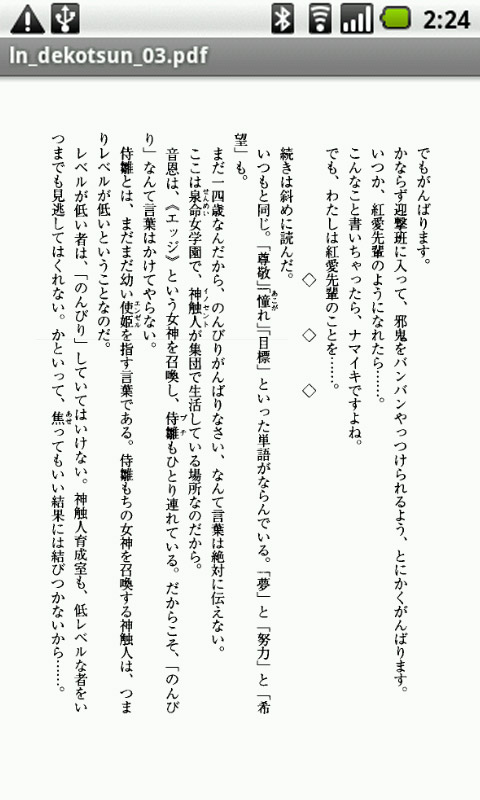 2:24
ln_dekotsun_03.pdf
でもがんばります。
かならず迎撃班に入って、邪鬼をバンバンやっつけられるよう、とにかくがんばります。
いつか、紅愛先輩のようになれたら……。
こんなこと書いちゃったら、ナマイキですよね。
でも、わたしは紅愛先輩のことを……。
◇ ◇ ◇
続きは斜めに読んだ。
いつもと同じ。「尊敬」「憧れ」「目標」といった単語がならんでいる。「夢」と「努力」と「希
望」も。
まだ一四歳なんだから、のんびりがんばりなさい、なんて言葉は絶対に伝えない。
ここは泉命女学園で、神触人が集団で生活している場所なのだから。
音恩は、《エッジ》という女神を召喚し、侍雛もひとり連れている。だからこそ、「のんび
り」なんて言葉はかけてやらない。
侍雛とは、まだまだ幼い使姫を指す言葉である。侍雛もちの女神を召喚する神触人は、つま
りレベルが低いということなのだ。
レベルが低い者は、「のんびり」していてはいけない。神触人育成室も、低レベルな者をい
つまでも見逃してはくれない。かといって、焦ってもいい結果には結びつかないから……。